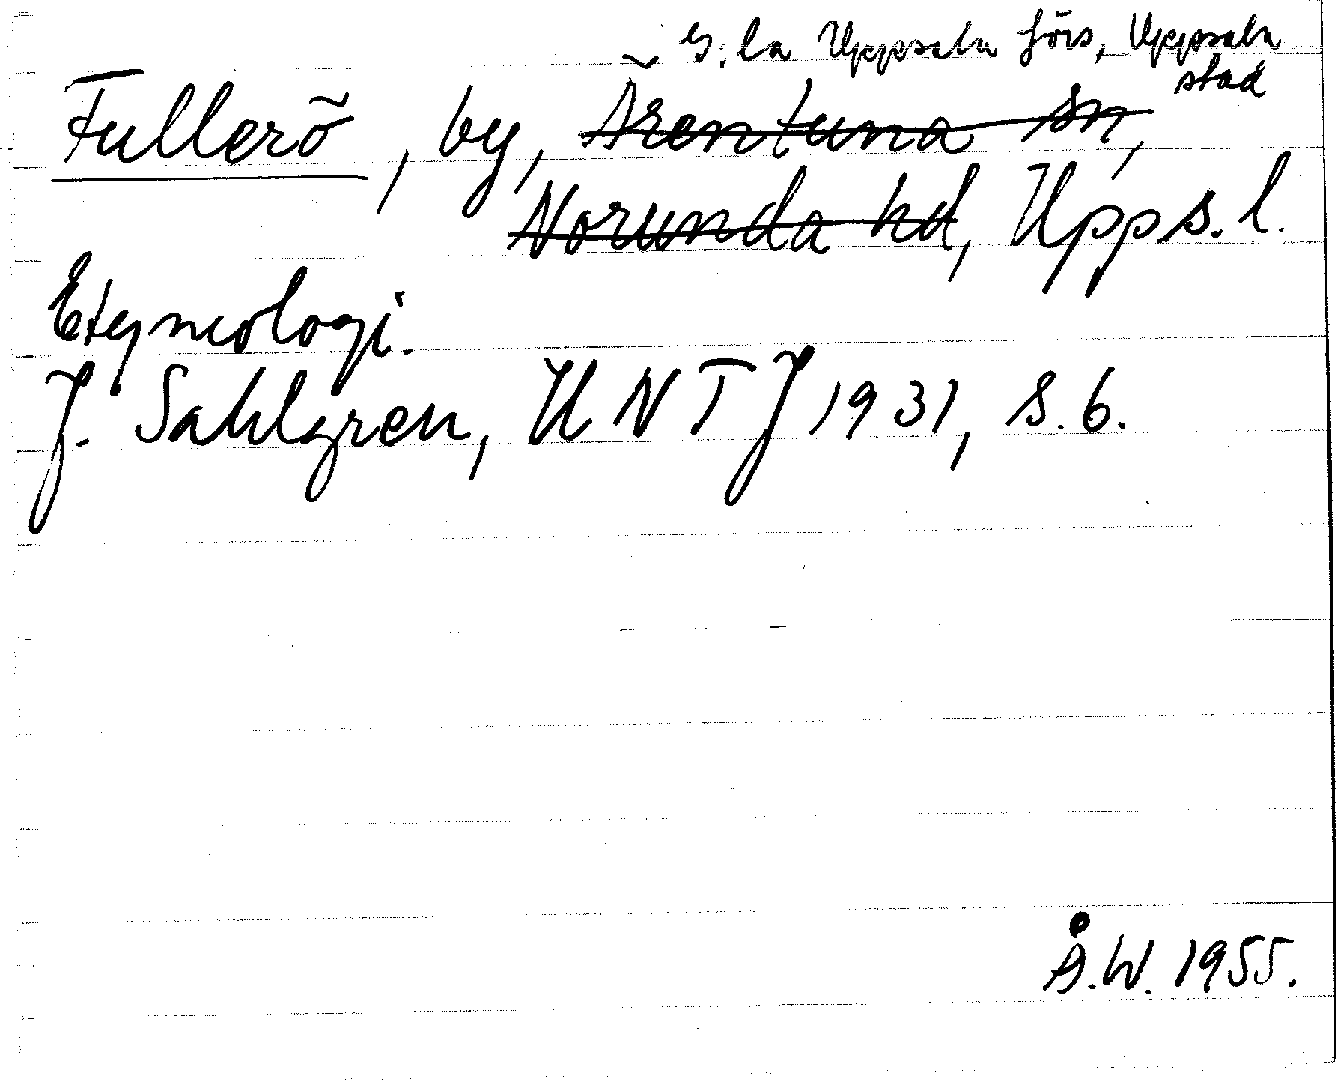 G:la Uppsala förs, Uppsala
stad
Fullerö, by, Ärentuna sn,
Norunda hd, Upps. l.
Etymologi.
J. Sahlgren, UNTJ 1931, s. 6.
Å.W. 1955.